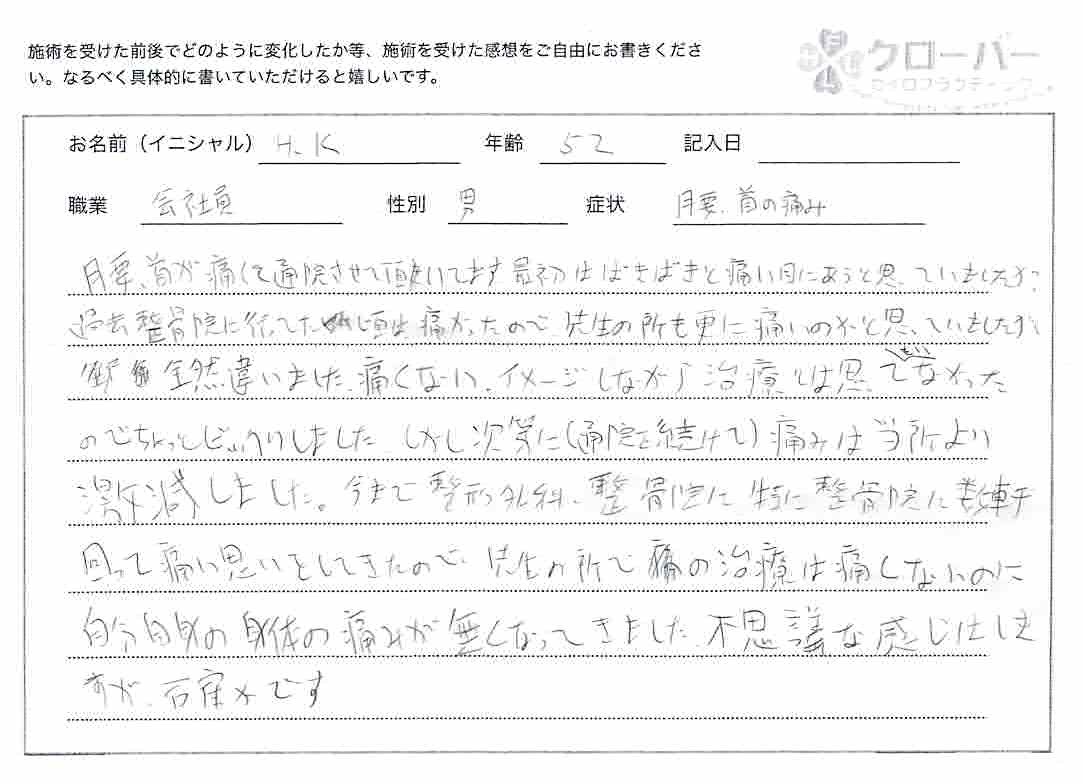 施術を受けた前後でどのように変化したか等、施術を受けた感想をご自由にお書きくださ
い。なるべく具体的に書いていただけると嬉しいです。
クローバー
カイロプラクティック
お名前（イニシャル） H.K 年齢 52 記入日
職業 会社員 性別 男 症状 腰、首の痛み
腰、首が痛くて通院させて頂いてます 最初はばきばきと痛い目にあうと思っていましたが
過去整骨院に行ってた頃は痛かったので、先生の所も更に痛いのかと思っていましたが
全然違いました、痛くない、イメージしながら治療とは思ってもいなかった
のでちょっとびっくりしました しかし次第に(通院を続けて)痛みは当所より
激減しました。今まで整形外科、整骨院に特に整骨院に数軒
回って痛い思いをしてきたので、先生の所で の治療は痛くないのに
自分自身の身体の痛みが無くなってきました 不思議な感じはしま
すが、確かです